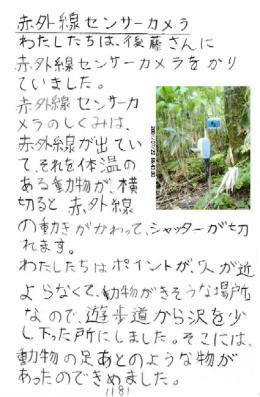 赤外線センサーカメラ
わたしたちは、後藤さんに
赤外線センサーカメラをかり
ていました。
赤外線センサーカ
メラのしくみは、
赤外線が出てい
て、それを体温の
ある動物が、横
切ると赤外線
の動きがかわって、シャッターが切
れます。
わたしたちはポイントが、人が近
よらなくて、動物がきそうな場所
なので、遊歩道から沢を少
し下った所にしました。そこには、
動物の足あとのような物が
あったのできめました。
(18)